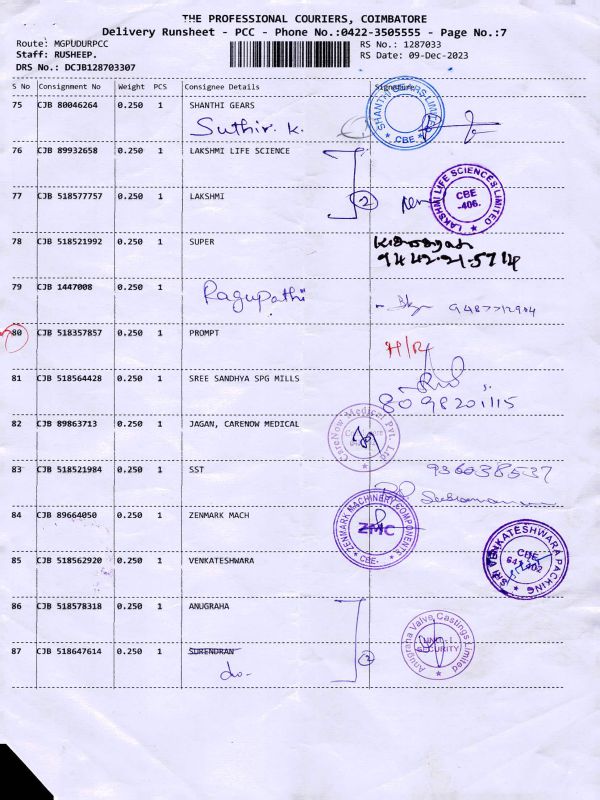 THE PROFESSIONAL COURIERS, COIMBATORE
Delivery Runsheet - PCC - Phone No.:0422-3505555 - Page No.:7
Route: MGPUDURPCC RS No.: 1287033
Staff: RUSHEEP. RS Date: 09-Dec-2023
DRS No.: DCJB128703307
S No Consignment No Weight PCS Consignee Details Signature
75 CJB 80046264 0.250 1 SHANTHI GEARS
Suthir. K.
SHANTHI GEARS LIMITED * CBE *
76 CJB 89932658 0.250 1 LAKSHMI LIFE SCIENCE
77 CJB 518577757 0.250 1 LAKSHMI
2
LAKSHMI LIFE SCIENCES LIMITED CBE -406. *
78 CJB 518521992 0.250 1 SUPER
9442-21-5714
79 CJB 1447008 0.250 1 Ragupathi
9487712904
80 CJB 518357857 0.250 1 PROMPT
H/R
81 CJB 518564428 0.250 1 SREE SANDHYA SPG MILLS
8098201115
82 CJB 89863713 0.250 1 JAGAN, CARENOW MEDICAL
CareNow Medical Pvt. Ltd. *
83 CJB 518521984 0.250 1 SST
9360385537
84 CJB 89664050 0.250 1 ZENMARK MACH
ZENMARK MACHINERY COMPONENTS ZMC * CBE *
85 CJB 518562920 0.250 1 VENKATESHWARA
SRI VENKATESHWARA PACKING CBE *
86 CJB 518578318 0.250 1 ANUGRAHA
87 CJB 518647614 0.250 1 SURENDRAN
do-
2
Anugraha Valve Castings Limited UNIT-I SECURITY *